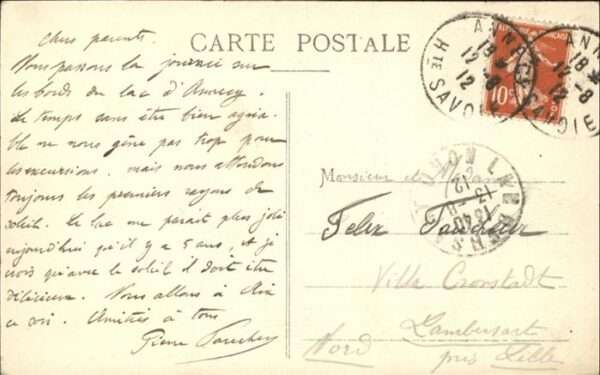 CARTE POSTALE
Chers parents.
Nous passons la journée sur
les bords du lac d'Annecy.
Le temps sans être bien agréa-
ble ne nous gêne pas trop pour
les excursions. mais nous attendons
toujours les premiers rayons de
soleil. Le lac me parait plus joli
aujourd'hui qu'il y a 5 ans, et je
crois qu'avec le soleil il doit être
délicieux. Nous allons à Aix
ce soir. Amitiés à tous
Pierre
ANNECY
18
12-8
12
HTE SAVOIE
10
ANN
18
12-8
12
SAVOIE
Monsieur et Madame
Felix
Villa Cronstadt
Lambersart
près Lille
Nord